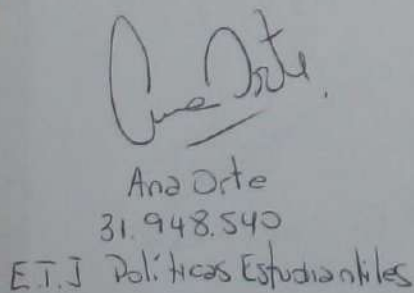 Ana Orte
Ana Orte
31.948.540
E.T.J Políticas Estudiantiles